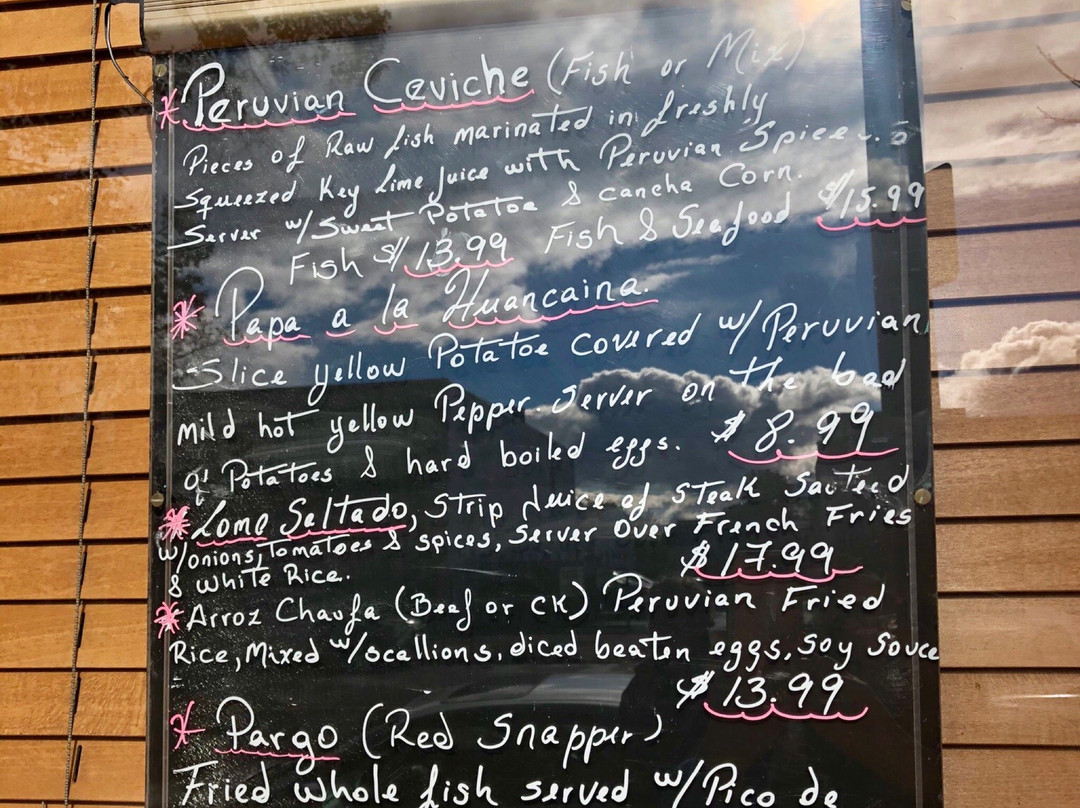 * Peruvian Ceviche (Fish or Mix)
Pieces of Raw fish marinated in freshly
Squeezed Key lime juice with Peruvian Spice
Server w/Sweet Potatoe & cancha Corn.
Fish $13.99 Fish & Seafood $15.99
* Papa a la Huancaina.
Slice yellow Potatoe covered w/Peruvian
mild hot yellow Pepper. Server on the bad
of Potatoes & hard boiled eggs. $8.99
* Lomo Saltado, Strip Juice of steak Sauteed
w/onions, Tomatoes & spices, Server Over French Fries
& White Rice. $17.99
* Arroz Chaufa (Beef or CK) Peruvian Fried
Rice, Mixed w/scallions, diced beaten eggs, soy Souce
$13.99
* Pargo (Red Snapper)
Fried whole fish served w/Pico de